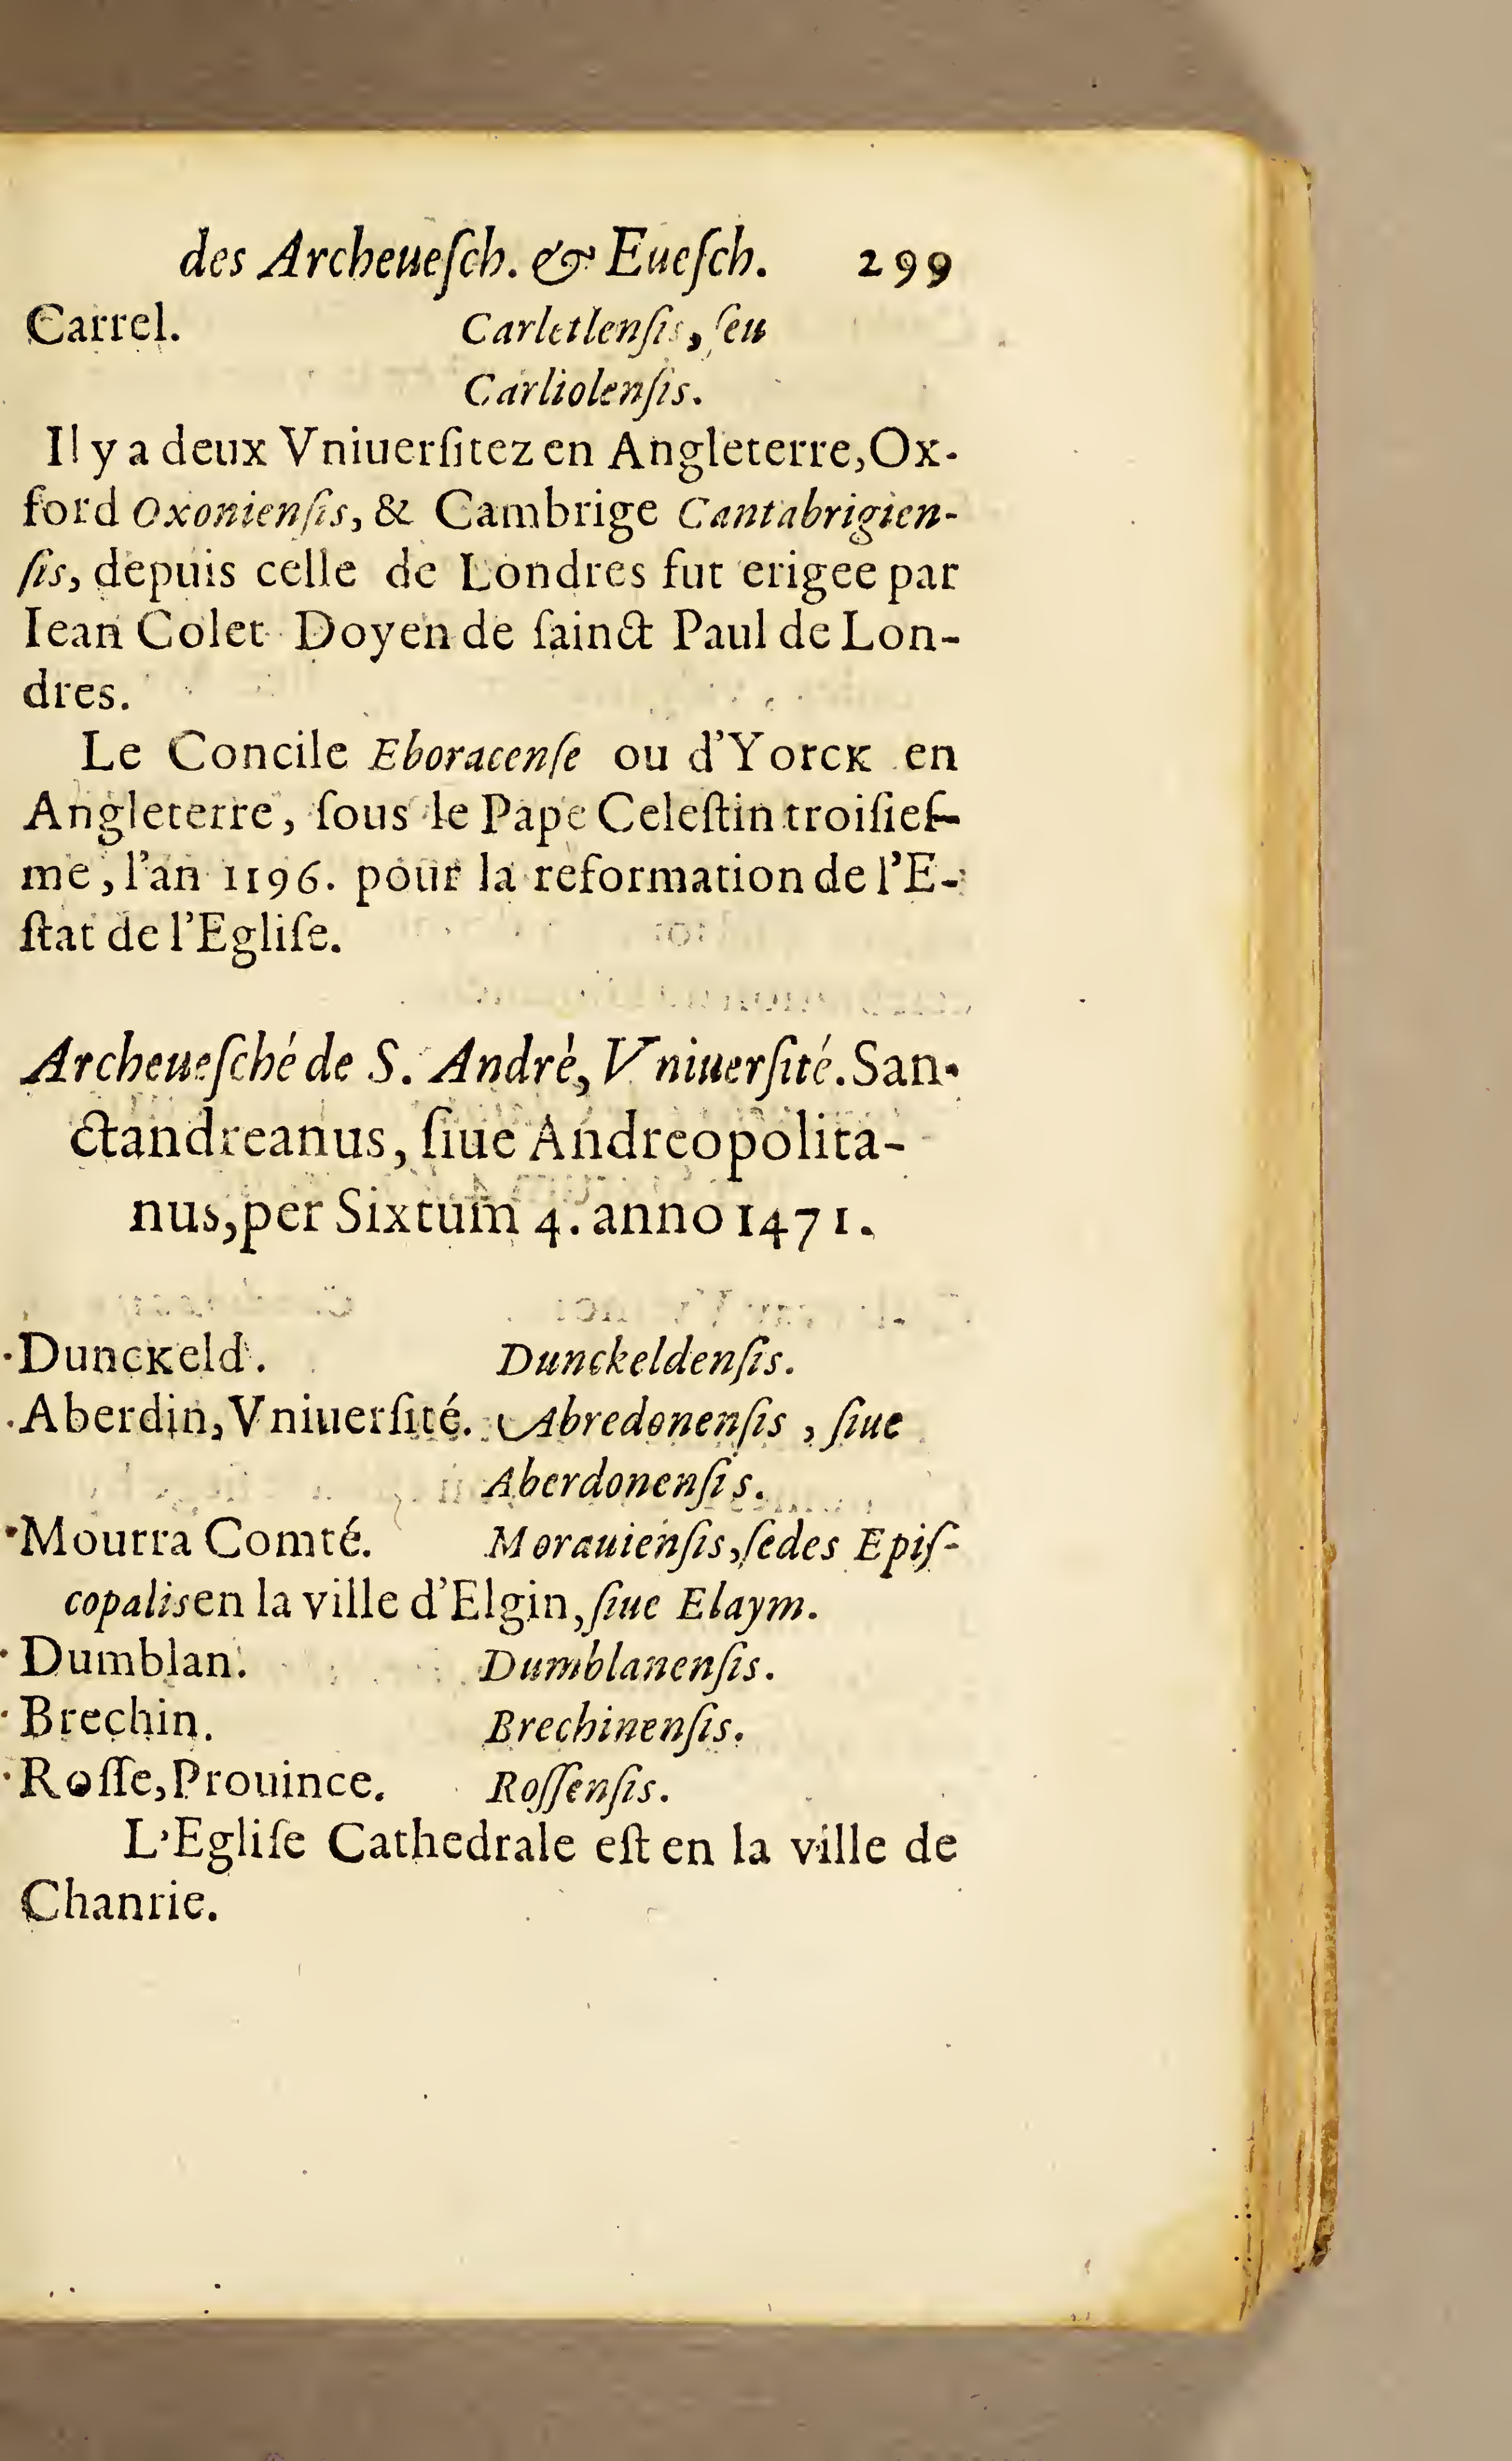 des Archeueſch. & Eueſch. 299
Carrel. Carletlenſis, ſeu
Carliolenſis.
Il y a deux Vniuerſitez en Angleterre, Ox-
ford Oxonienſis, & Cambrige Cantabrigien-
ſis, depuis celle de Londres fut erigee par
Iean Colet Doyen de ſainct Paul de Lon-
dres.
Le Concile Eboracenſe ou d'Yorck en
Angleterre, ſous le Pape Celeſtin troiſieſ-
me, l'an 1196. pour la reformation de l'E-
ſtat de l'Egliſe.
Archeueſché de S. Andrè, Vniuerſité. San-
ctandreanus, ſiue Andreopolita-
nus, per Sixtum 4. anno 1471.
Dunckeld. Dunckeldenſis.
Aberdin, Vniuerſité. Abredonenſis, ſiue
Aberdonenſis.
Mourra Comté. Morauienſis, ſedes Epiſ-
copalis en la ville d'Elgin, ſiue Elaym.
Dumblan. Dumblanenſis.
Brechin. Brechinenſis.
Roſſe, Prouince. Roſſenſis.
L'Egliſe Cathedrale eſt en la ville de
Chanrie.